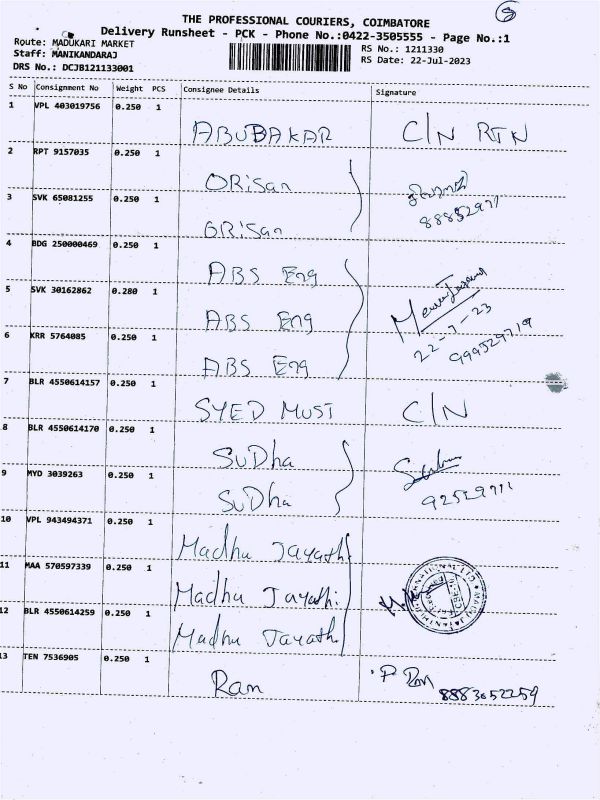 THE PROFESSIONAL COURIERS, COIMBATORE
Delivery Runsheet - PCK - Phone No.:0422-3505555 - Page No.:1
Route: MADUKARI MARKET
Staff: MANIKANDARAJ
DRS No.: DCJB121133001
RS No.: 1211330
RS Date: 22-Jul-2023
S No Consignment No Weight PCS Consignee Details Signature
1 VPL 403019756 0.250 1 ABUBAKAR C/N RTN
2 RPT 9157035 0.250 1 ORiSan
3 SVK 65081255 0.250 1 GRiSan
4 BDG 250000469 0.250 1 ABS Eng
5 SVK 30162862 0.280 1 ABS Eng
22-7-23
6 KRR 5764085 0.250 1 ABS Eng
7 BLR 4550614157 0.250 1 SYED MUST C/N
8 BLR 4550614170 0.250 1 SuDha
9 MYD 3039263 0.250 1 SuDha
10 VPL 943494371 0.250 1 Madhu Jayathi
11 MAA 570597339 0.250 1 Madhu Jayathi
12 BLR 4550614259 0.250 1 Madhu Jayathi
13 TEN 7536905 0.250 1 Ram
8883652259